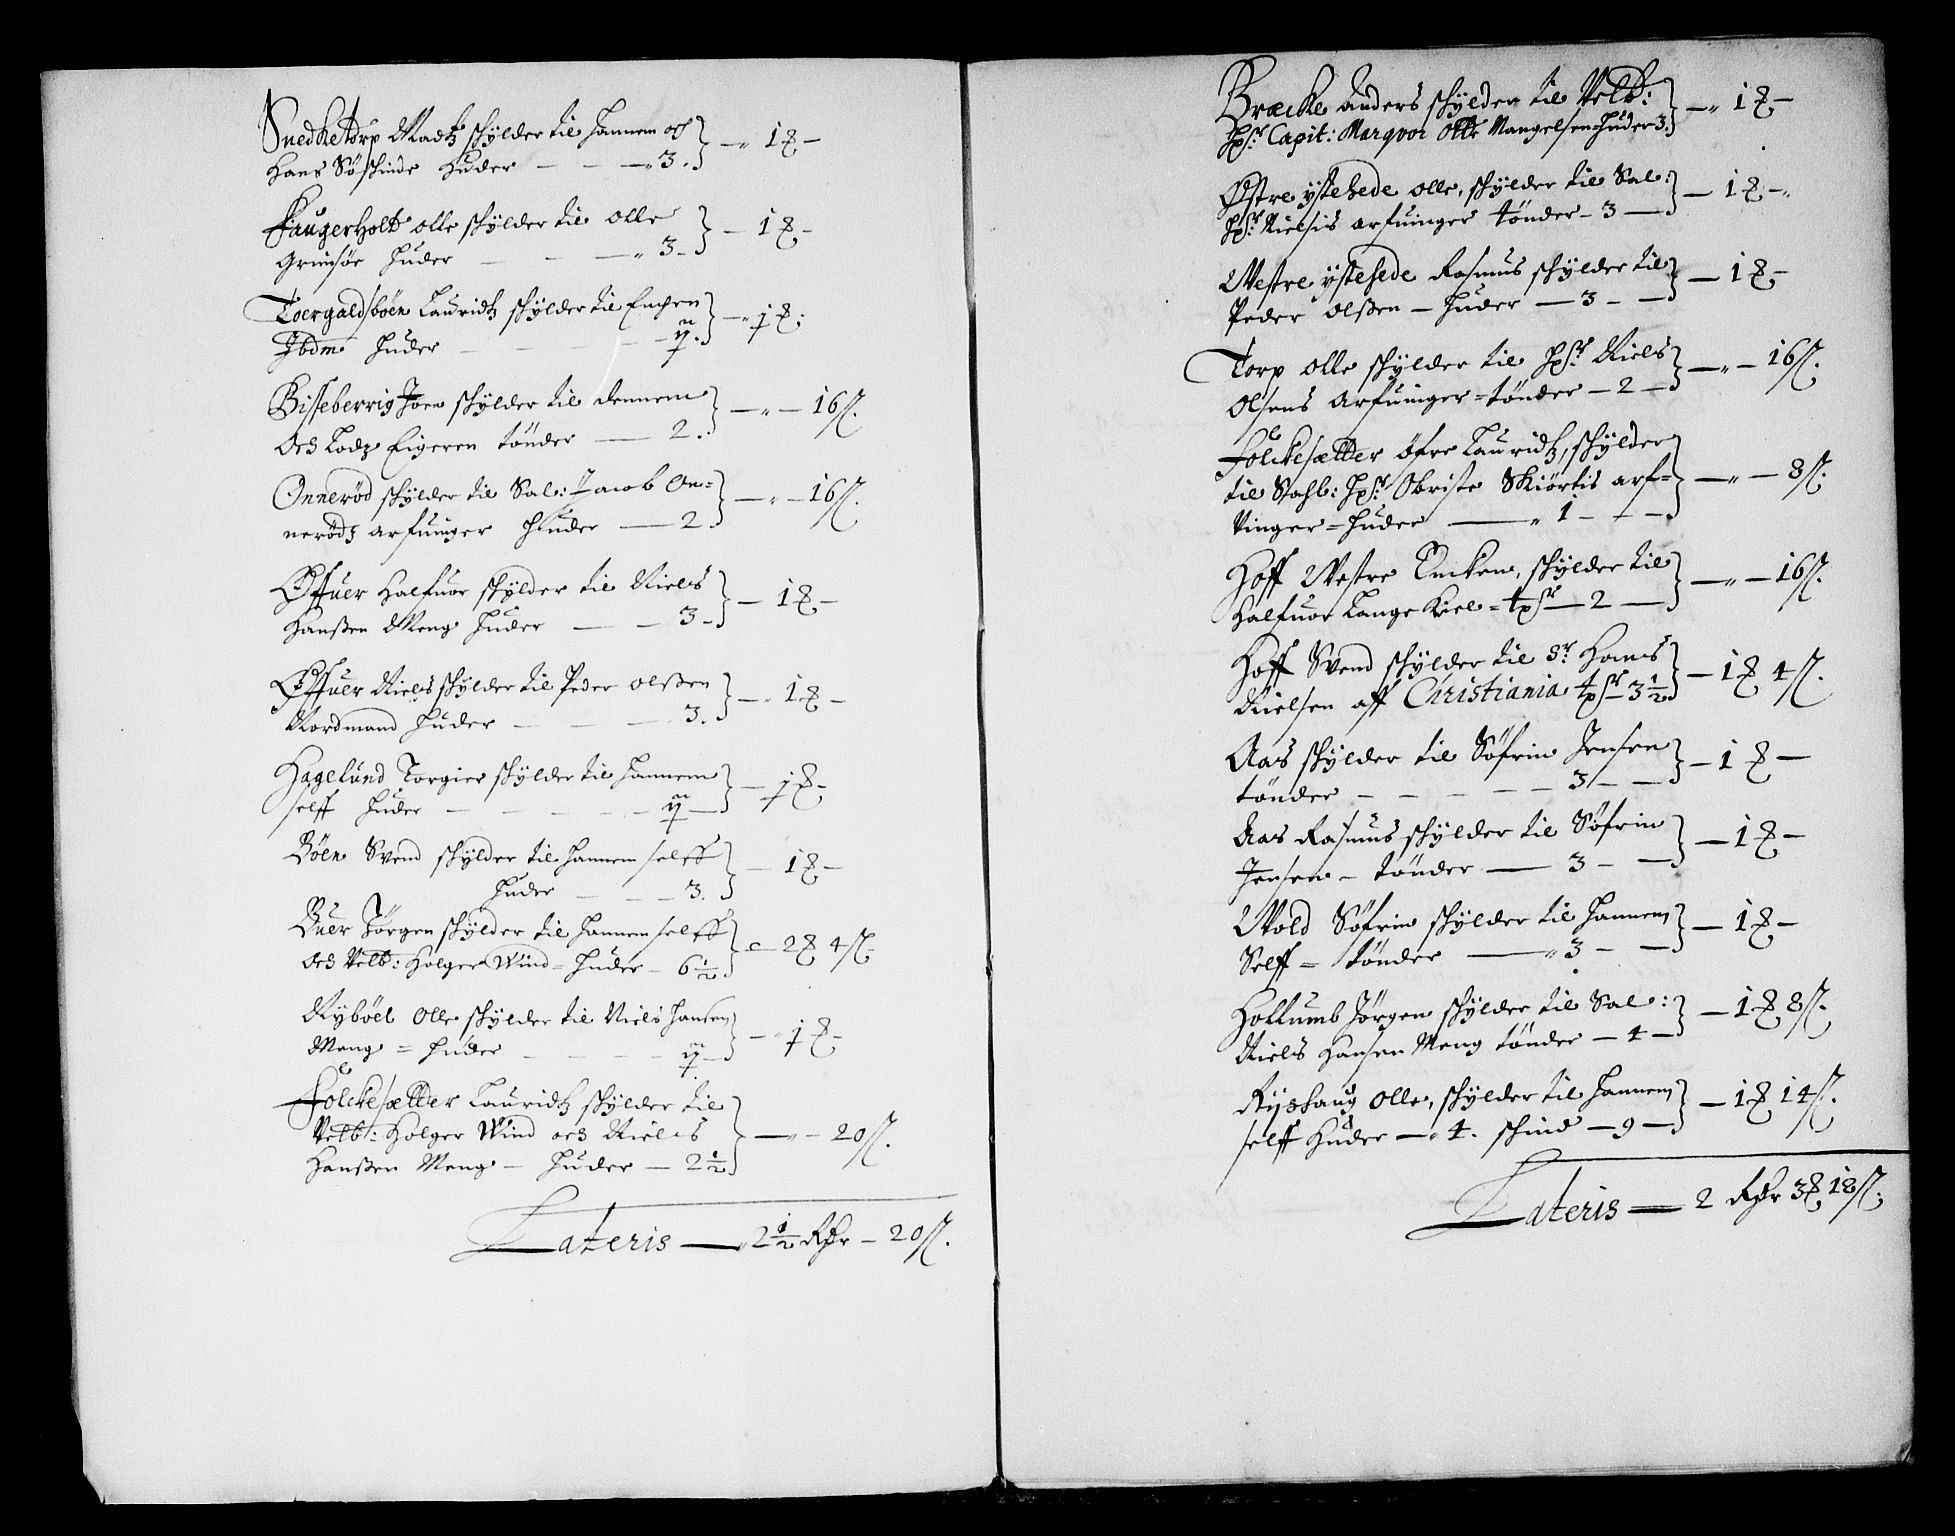 Snedketorp Madtz schylder til hannem och
Hans Söskinde Huder — 3. — 1 ℥ —
Faugerholt olle schylder til olle
Grimsøe huder — 3 — 1 ℥ —
Toergaldsböen Lauridtz schylder til Enchen
Ibdm huder — — 1 ℥
Bisseberrig Joen schylder til dennem
och Lodz Eigeren tönder — 2. — 16 ß.
Onneröd schylder til Sal: Jacob On=
nerödz arfuinger Huder — 2 — 16 ß.
Øffuer Halfuor schylder til Niels
Hanßen Meng huder — 3 — 1 ℥ —
Øffuer Niels schylder til Peder olßen
Nordmand huder — 3. — 1 ℥ —
Hagelund Torgier schylder til hannem
selff huder — — 1 ℥ —
Böen Svend schylder til hannem selff
huder — 3. — 1 ℥ —
Buer Jörgen schylder til hannem selff
och Velb: Holger Wind = huder — 6½ — 2 ℥ 4 ß.
Nyböel Olle schylder til Niels Hansen
Meng = huder — — 1 ℥ —
Folckesætter Lauridtz schylder til
Velb: Holger Wind och Niels
Hanßen Meng — huder — 2½ — 20 ß.
Lateris — 2½ Rdr — 20 ß.
Bræcke anders schylder til Velb:
Hr. Capit: Marqvor Otte Mangelsen huder 3. — 1 ℥ —
Østre ystehede olle, schylder til Sal:
Hr. Nielsis arfuinger tönder — 3 — 1 ℥ —
Westre ystehede Rasmus schylder til
Peder olßen — huder — 3 — 1 ℥ —
Torp olle schylder til Hr. Niels
Olsens Arfuinger = tönder — 2 — 16 ß.
Folckesætter öfre Lauridtz, schylder
til Sahl: Hr. Obriste Skiörtis arf=
vinger = huder — 1 — 8 ß.
Hoff Westre Encken, schylder til
Halfuor Lange Kiel = tpr — 2 — 16 ß.
Hoff Svend schylder til Sr. Hans
Nielsen aff Christiania tpr 3½ — 1 ℥ 4 ß.
Aas schylder til Söfrin Jensen
tönder — 3 — 1 ℥ —
Aas Rasmus schylder til Söfrin
Jensen — tönder — 3 — 1 ℥ —
Wold Söfrin schylder til hannem
Selff = tönder — 3 — 1 ℥ —
Hollumb Jörgen schylder til Sal:
Niels Hansen Meng tönder — 4 — 1 ℥ 8 ß.
Ryshaug Olle, schylder til hannem
selff Huder — 4. schind — 9 — 1 ℥ 14 ß.
Lateris — 2 Rdr 3 ℥ 18 ß.